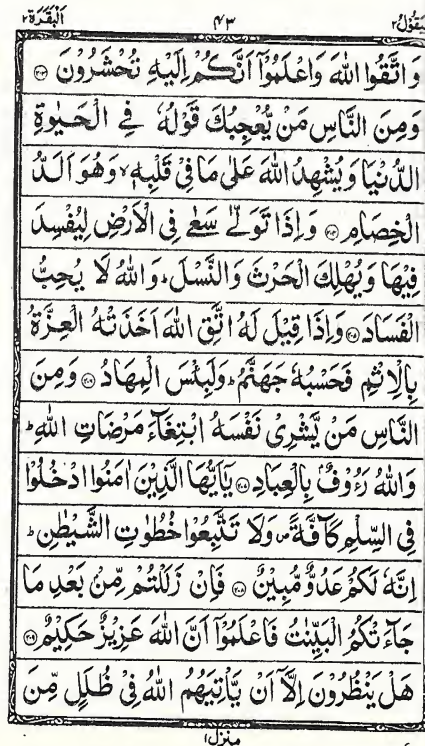 سيقول ٢ ٤٣ البقرة ٢
وَاتَّقُوا اللّٰهَ وَاعْلَمُوْٓا اَنَّكُمْ اِلَيْهِ تُحْشَرُوْنَ ﴿۲۰۳﴾
وَمِنَ النَّاسِ مَنْ يُّعْجِبُكَ قَوْلُهٗ فِي الْحَيٰوةِ
الدُّنْيَا وَيُشْهِدُ اللّٰهَ عَلٰى مَا فِيْ قَلْبِهٖ ۙ وَهُوَ اَلَدُّ
الْخِصَامِ ﴿۲۰۴﴾ وَاِذَا تَوَلّٰى سَعٰى فِي الْاَرْضِ لِيُفْسِدَ
فِيْهَا وَيُهْلِكَ الْحَرْثَ وَالنَّسْلَ ؕ وَاللّٰهُ لَا يُحِبُّ
الْفَسَادَ ﴿۲۰۵﴾ وَاِذَا قِيْلَ لَهُ اتَّقِ اللّٰهَ اَخَذَتْهُ الْعِزَّةُ
بِالْاِثْمِ فَحَسْبُهٗ جَهَنَّمُ ؕ وَلَبِئْسَ الْمِهَادُ ﴿۲۰۶﴾ وَمِنَ
النَّاسِ مَنْ يَّشْرِيْ نَفْسَهُ ابْتِغَآءَ مَرْضَاتِ اللّٰهِ ؕ
وَاللّٰهُ رَءُوْفٌۢ بِالْعِبَادِ ﴿۲۰۷﴾ يٰٓاَيُّهَا الَّذِيْنَ اٰمَنُوا ادْخُلُوْا
فِي السِّلْمِ كَآفَّةً ۪ وَلَا تَتَّبِعُوْا خُطُوٰتِ الشَّيْطٰنِ ؕ
اِنَّهٗ لَكُمْ عَدُوٌّ مُّبِيْنٌ ﴿۲۰۸﴾ فَاِنْ زَلَلْتُمْ مِّنْۢ بَعْدِ مَا
جَآءَتْكُمُ الْبَيِّنٰتُ فَاعْلَمُوْٓا اَنَّ اللّٰهَ عَزِيْزٌ حَكِيْمٌ ﴿۲۰۹﴾
هَلْ يَنْظُرُوْنَ اِلَّآ اَنْ يَّاْتِيَهُمُ اللّٰهُ فِيْ ظُلَلٍ مِّنَ
منزل ١